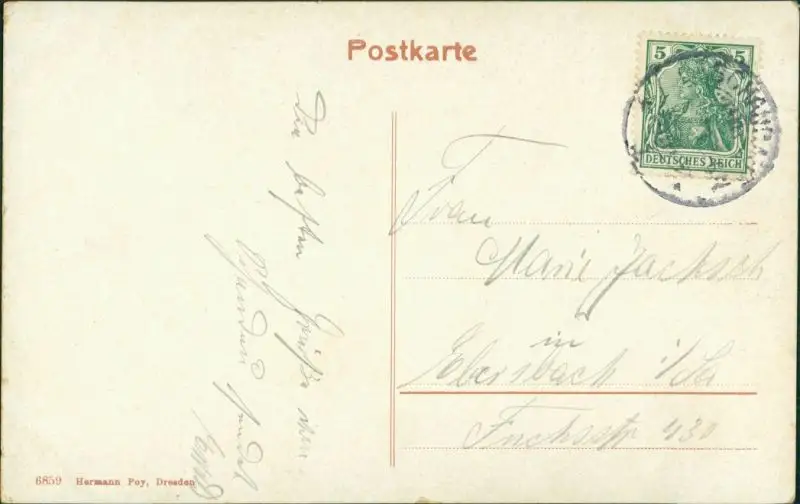 Postkarte
5 5
DEUTSCHES REICH
SCHANDAU
Die besten Grüße von
Schandau sendet
Frau
Marie Jacksch
in
Ebersbach i/Sa
Fuchsstr 430
6859 Hermann Poy, Dresden